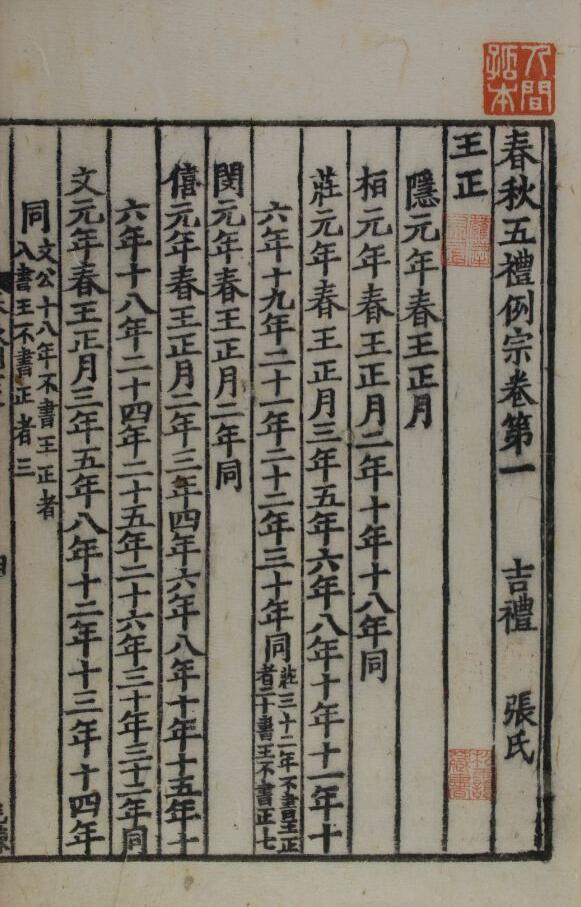 人間孤本
春秋五禮例宗卷第一　吉禮　張氏
王正
隱元年春王正月
桓元年春王正月二年十年十八年同
莊元年春王正月三年五年六年八年十年十一年十
六年十九年二十一年二十二年三十年同莊三十二年不書王正
者二十書王不書正七
閔元年春王正月二年同
僖元年春王正月二年三年四年六年八年十年十五年十
六年十八年二十四年二十五年二十六年三十年三十二年同
文元年春王正月三年五年八年十二年十三年十四年
同文公十八年不書王正者
八書王不書正者三